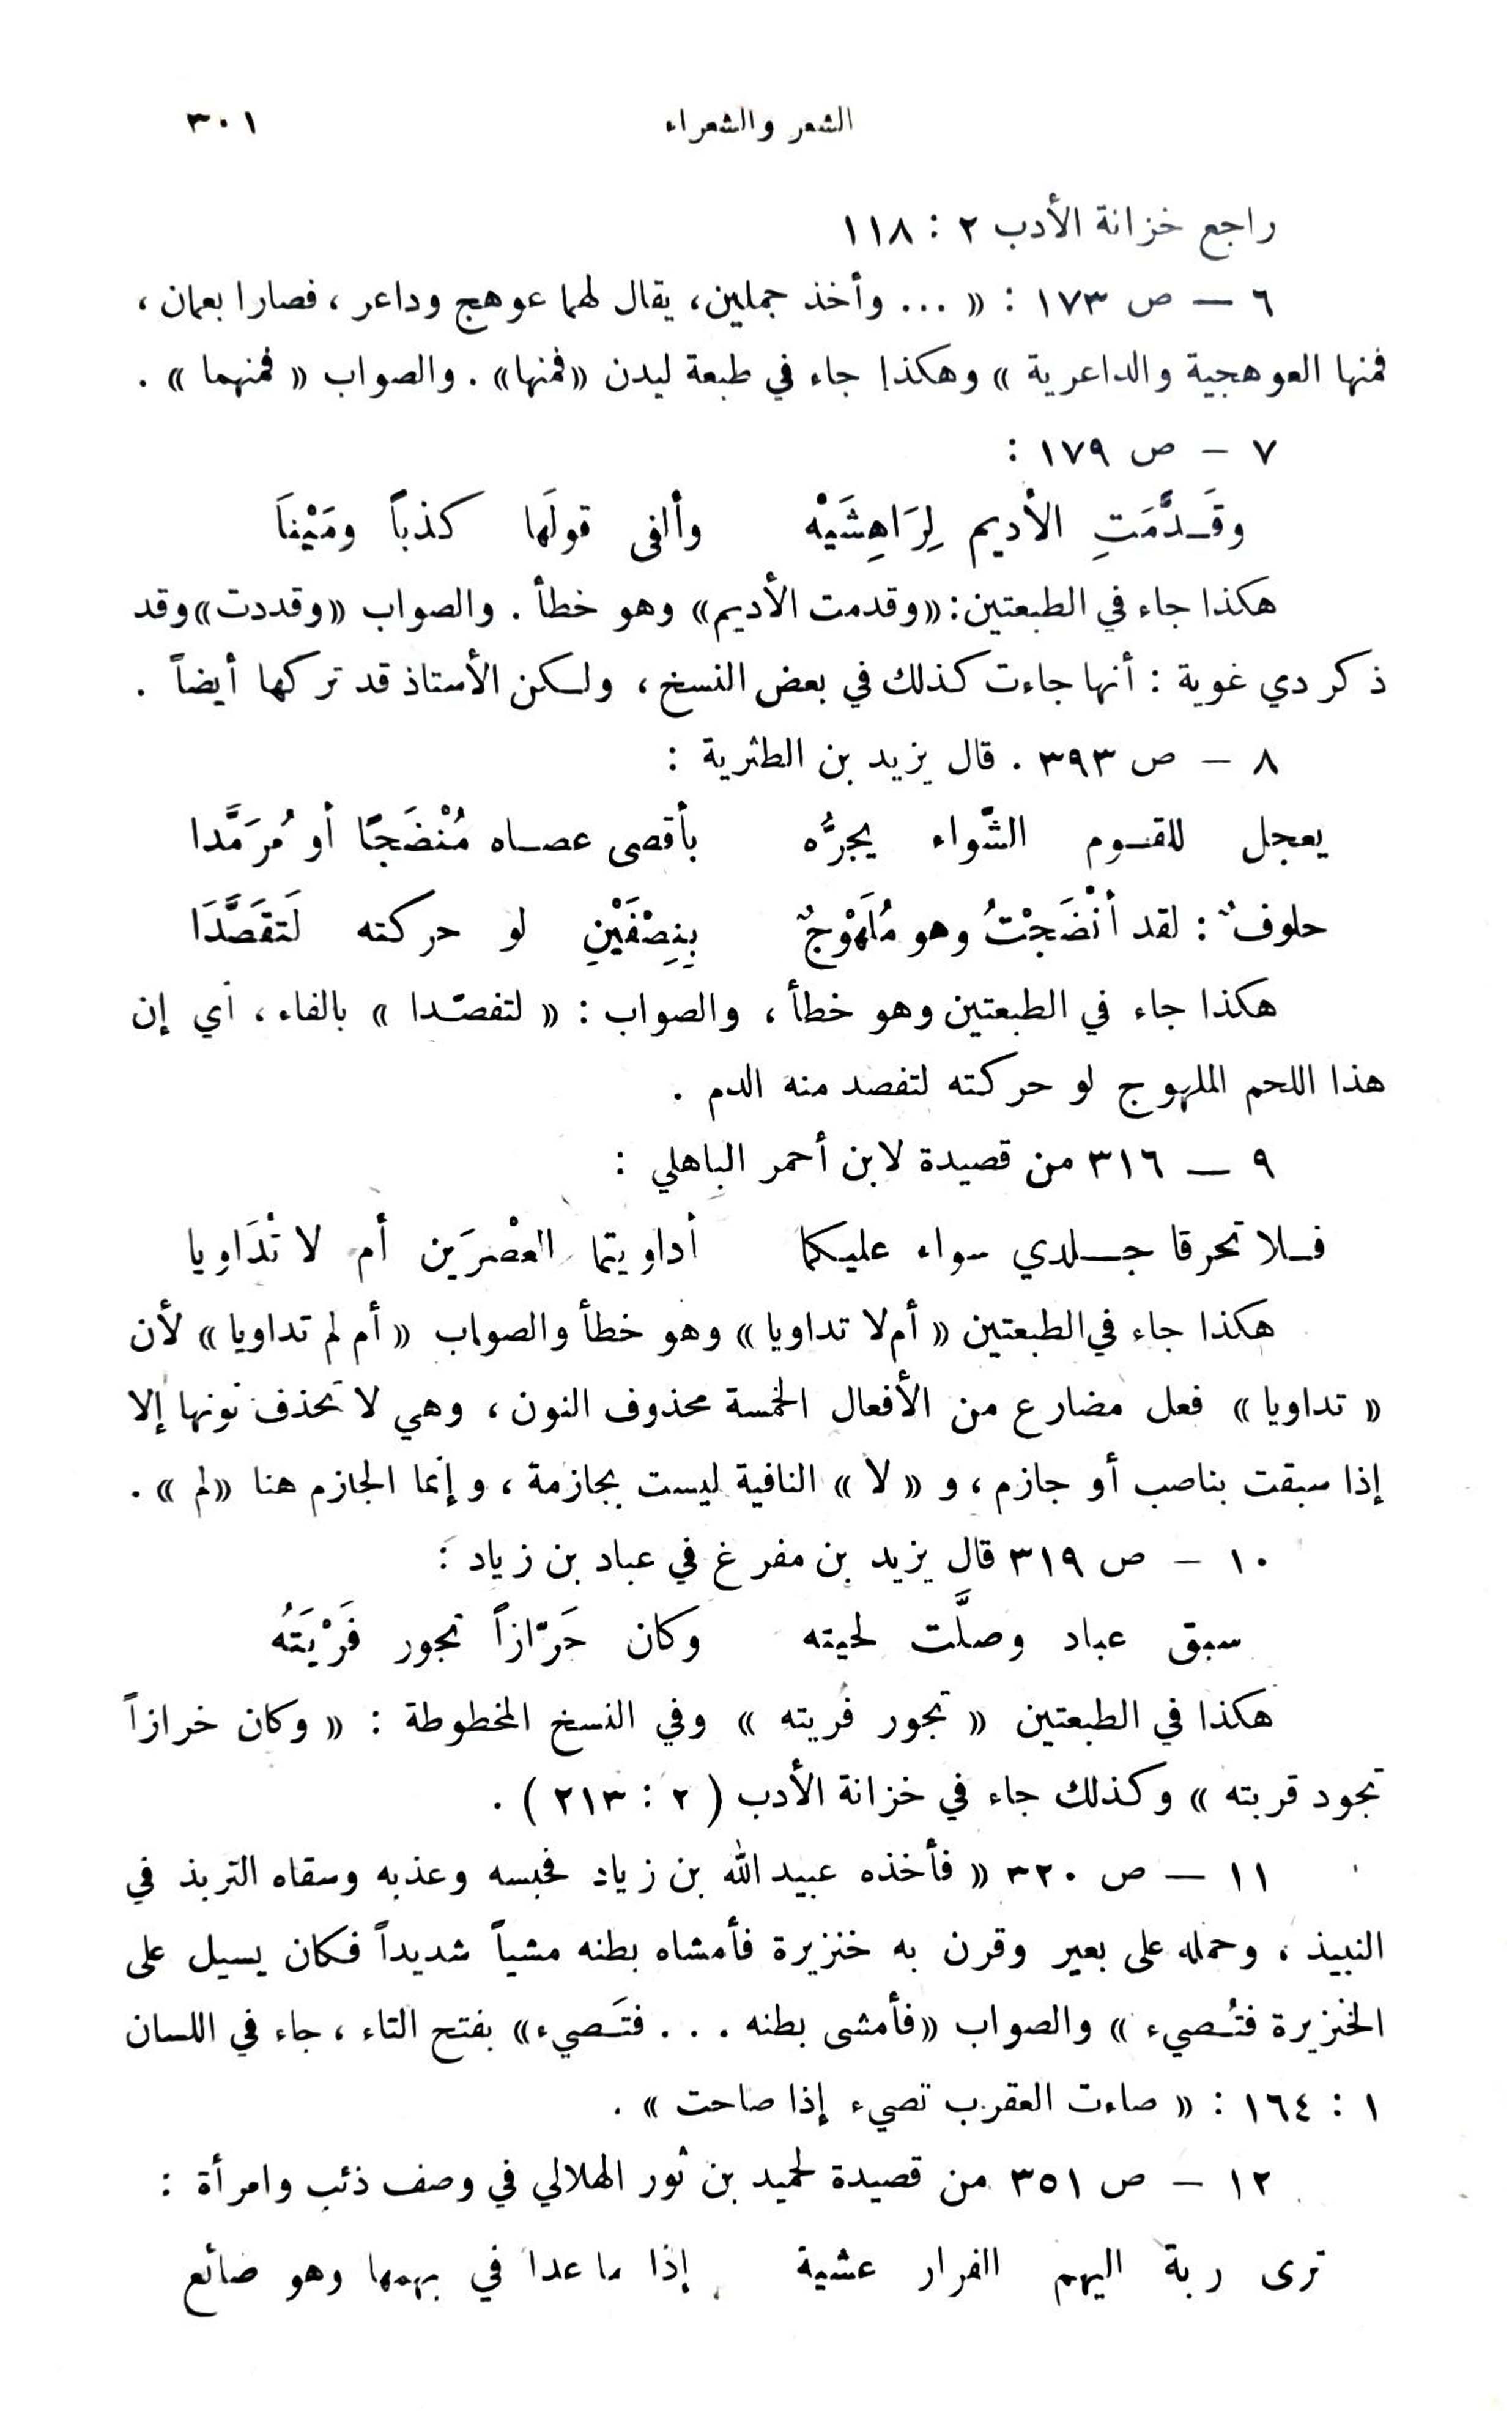 الشعر والشعراء ٣٠١
راجع خزانة الأدب ٢ : ١١٨
٦ — ص ١٧٣ : « ... وأخذ جملين، يقال لهما عوهج وداعر ، فصارا بعمان ،
فمنها العوهجية والداعرية » وهكذا جاء في طبعة ليدن «فمنها» . والصواب « فمنهما » .
٧ – ص ١٧٩ :
وقَـدَّمَتِ الأديم لِرَاهِشَيْه وألفى قولَها كذباً ومَيْناَ
هكذا جاء في الطبعتين: «وقدمت الأديم» وهو خطأ . والصواب «وقددت» وقد
ذكر دي غوية : أنها جاءت كذلك في بعض النسخ ، ولكن الأستاذ قد تركها أيضاً .
٨ – ص ٣٩٣ . قال يزيد بن الطثرية :
يعجل للقـوم الشّواء يجرُّه بأقصى عصـاه مُنْضَجًا أو مُرَمَّدا
حلوفٌ : لقد أنْضَجْتُ وهو مُلَهْوَجٌ بِنِصْفَيْنِ لو حركته لَتقَصَّدَا
هكذا جاء في الطبعتين وهو خطأ ، والصواب : « لتفصّدا » بالفاء ، أي إن
هذا اللحم الملهوج لو حركته لتفصد منه الدم .
٩ — ٣١٦ من قصيدة لابن أحمر الباهلي :
فـلا تحرقا جـلدي سواء عليكما أداويتما العصْرَين أم لا تُدَاوِيا
هكذا جاء في الطبعتين « أم لا تداويا » وهو خطأ والصواب « أم لم تداويا » لأن
« تداويا » فعل مضارع من الأفعال الخمسة محذوف النون ، وهي لا تحذف نونها إلا
إذا سبقت بناصب أو جازم ، و « لا » النافية ليست بجازمة ، وإنما الجازم هنا «لم » .
١٠ – ص ٣١٩ قال يزيد بن مفرغ في عباد بن زياد :
سبق عباد وصلَّت لحيته وكان خَرّازاً تجور فَرْيَتَهُ
هكذا في الطبعتين « تجور فريته » وفي النسخ المخطوطة : « وكان خرازاً
تجود قربته » وكذلك جاء في خزانة الأدب ( ٢ : ٢١٣ ) .
١١ — ص ٣٢٠ « فأخذه عبيد الله بن زياد فحبسه وعذبه وسقاه التربذ في
النبيذ ، وحمله على بعير وقرن به خنزيرة فأمشاه بطنه مشياً شديداً فكان يسيل على
الخنزيرة فتُـصيء » والصواب «فأمشى بطنه . . . فتَـصيء» بفتح التاء ، جاء في اللسان
١ : ١٦٤ : « صاءت العقرب تصيء إذا صاحت » .
١٢ – ص ٣٥١ من قصيدة لحميد بن ثور الهلالي في وصف ذئب وامرأة :
ترى ربة البهم الفرار عشية إذا ما عدا في بهمها وهو ضائع